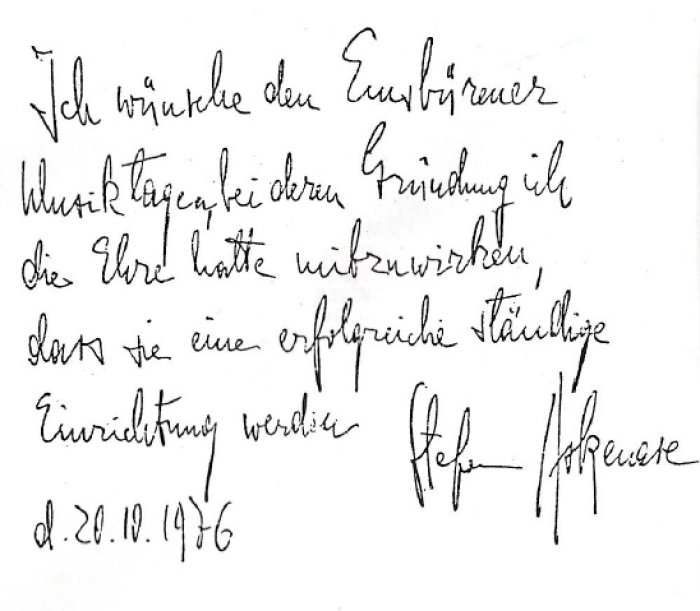 Ich wünsche den Emsbürener
Musiktagen, bei deren Gründung ich
die Ehre hatte mitzuwirken,
dass sie eine erfolgreiche ständige
Einrichtung werden
Stefan Askenase
d. 20.10.1976